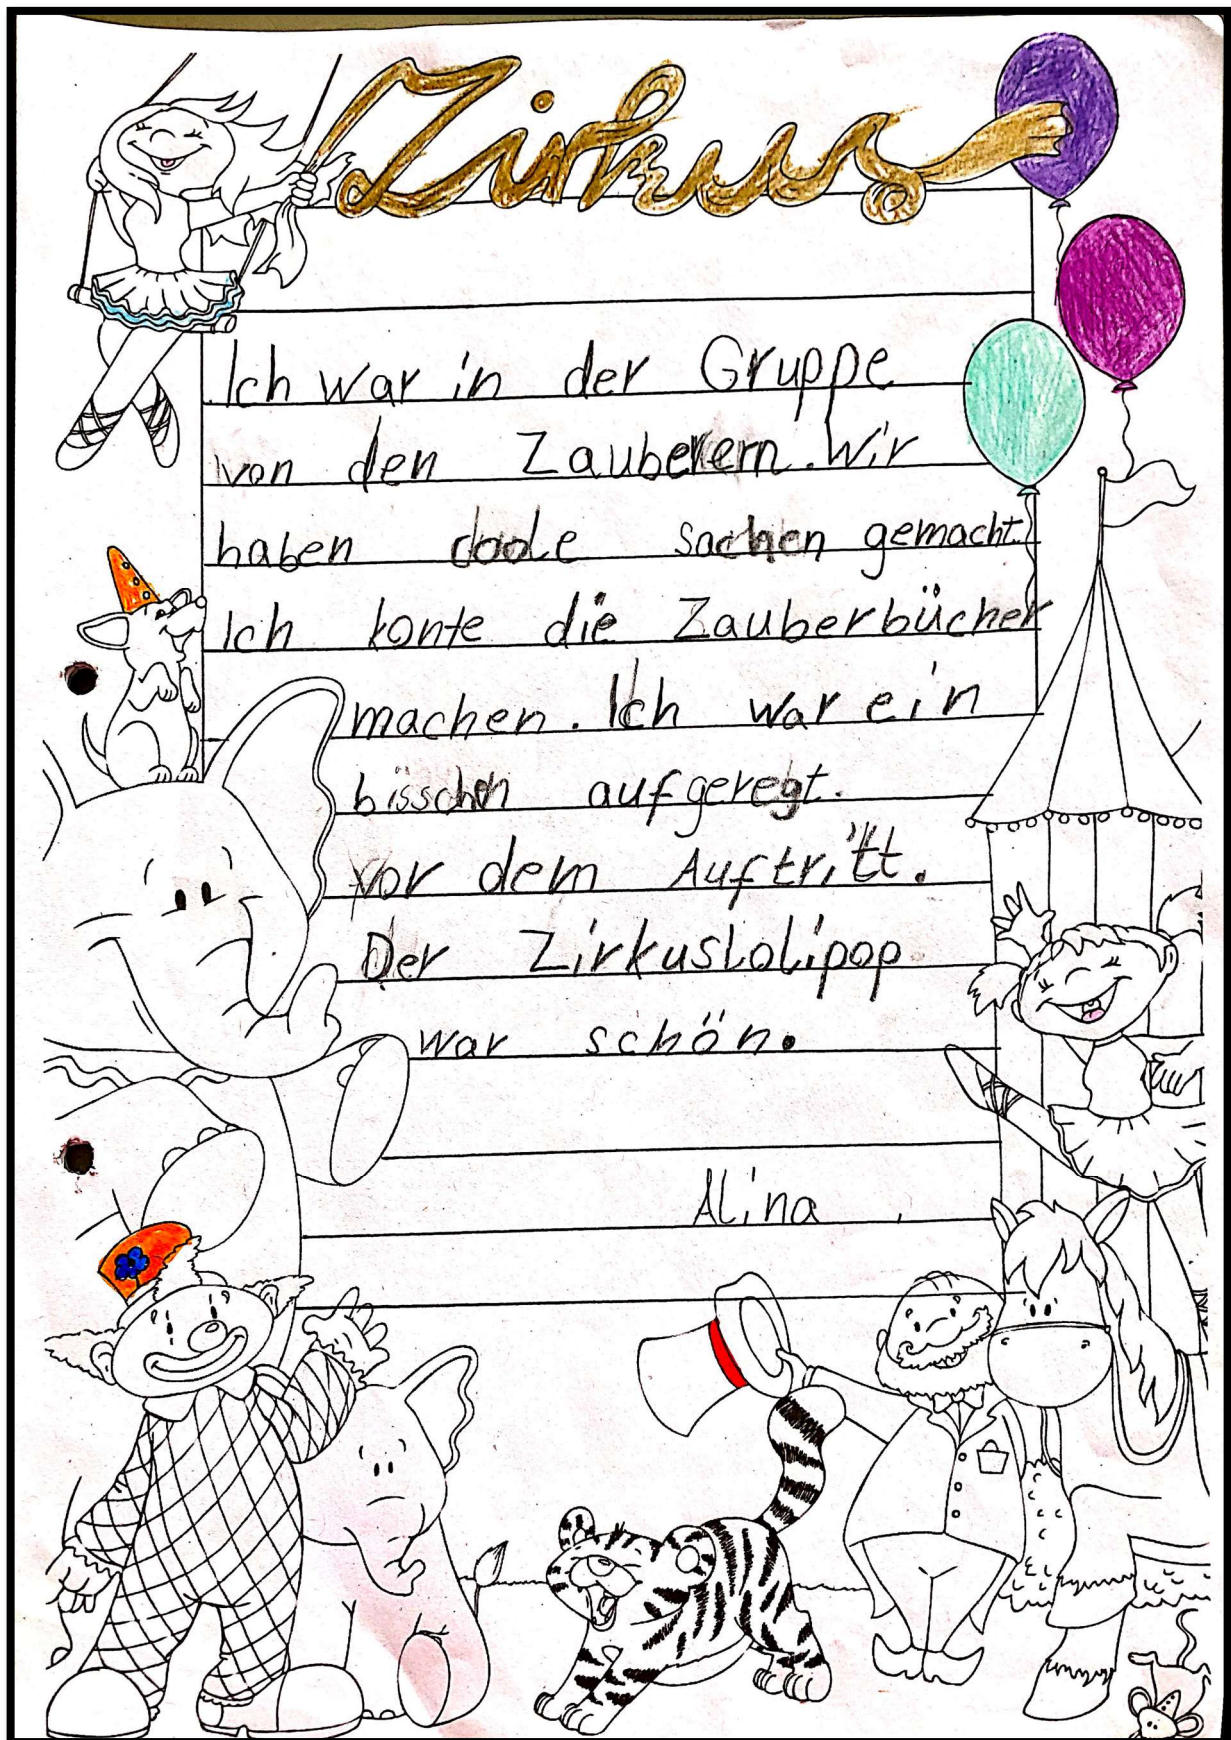 Zirkus
Ich war in der Gruppe
von den Zauberern. Wir
haben coole sachen gemacht.
Ich konte die Zauberbücher
machen. Ich war ein
bisschen aufgeregt.
vor dem Auftritt.
Der ZirkusLolipop
war schön.
Alina